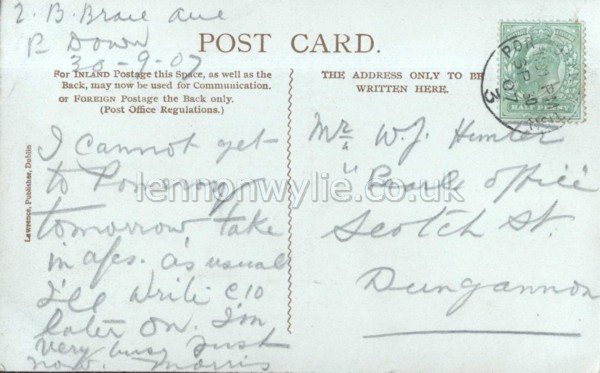 2. B. Brae Ave
P. Down
30-9-07
POST CARD.
For INLAND Postage this Space, as well as the
Back, may now be used for Communication.
or FOREIGN Postage the Back only.
(Post Office Regulations.)
THE ADDRESS ONLY TO BE
WRITTEN HERE.
HALF PENNY
3
Lawrence, Publisher, Dublin
I cannot get
to Pomeroy
tomorrow take
in a/cs. as usual
I'll write c/o
later on. I'm
very busy just
now. Morris
Mr W. J. Hunter
"Pearl" Office
Scotch St.
Dungannon
lennonwylie.co.uk